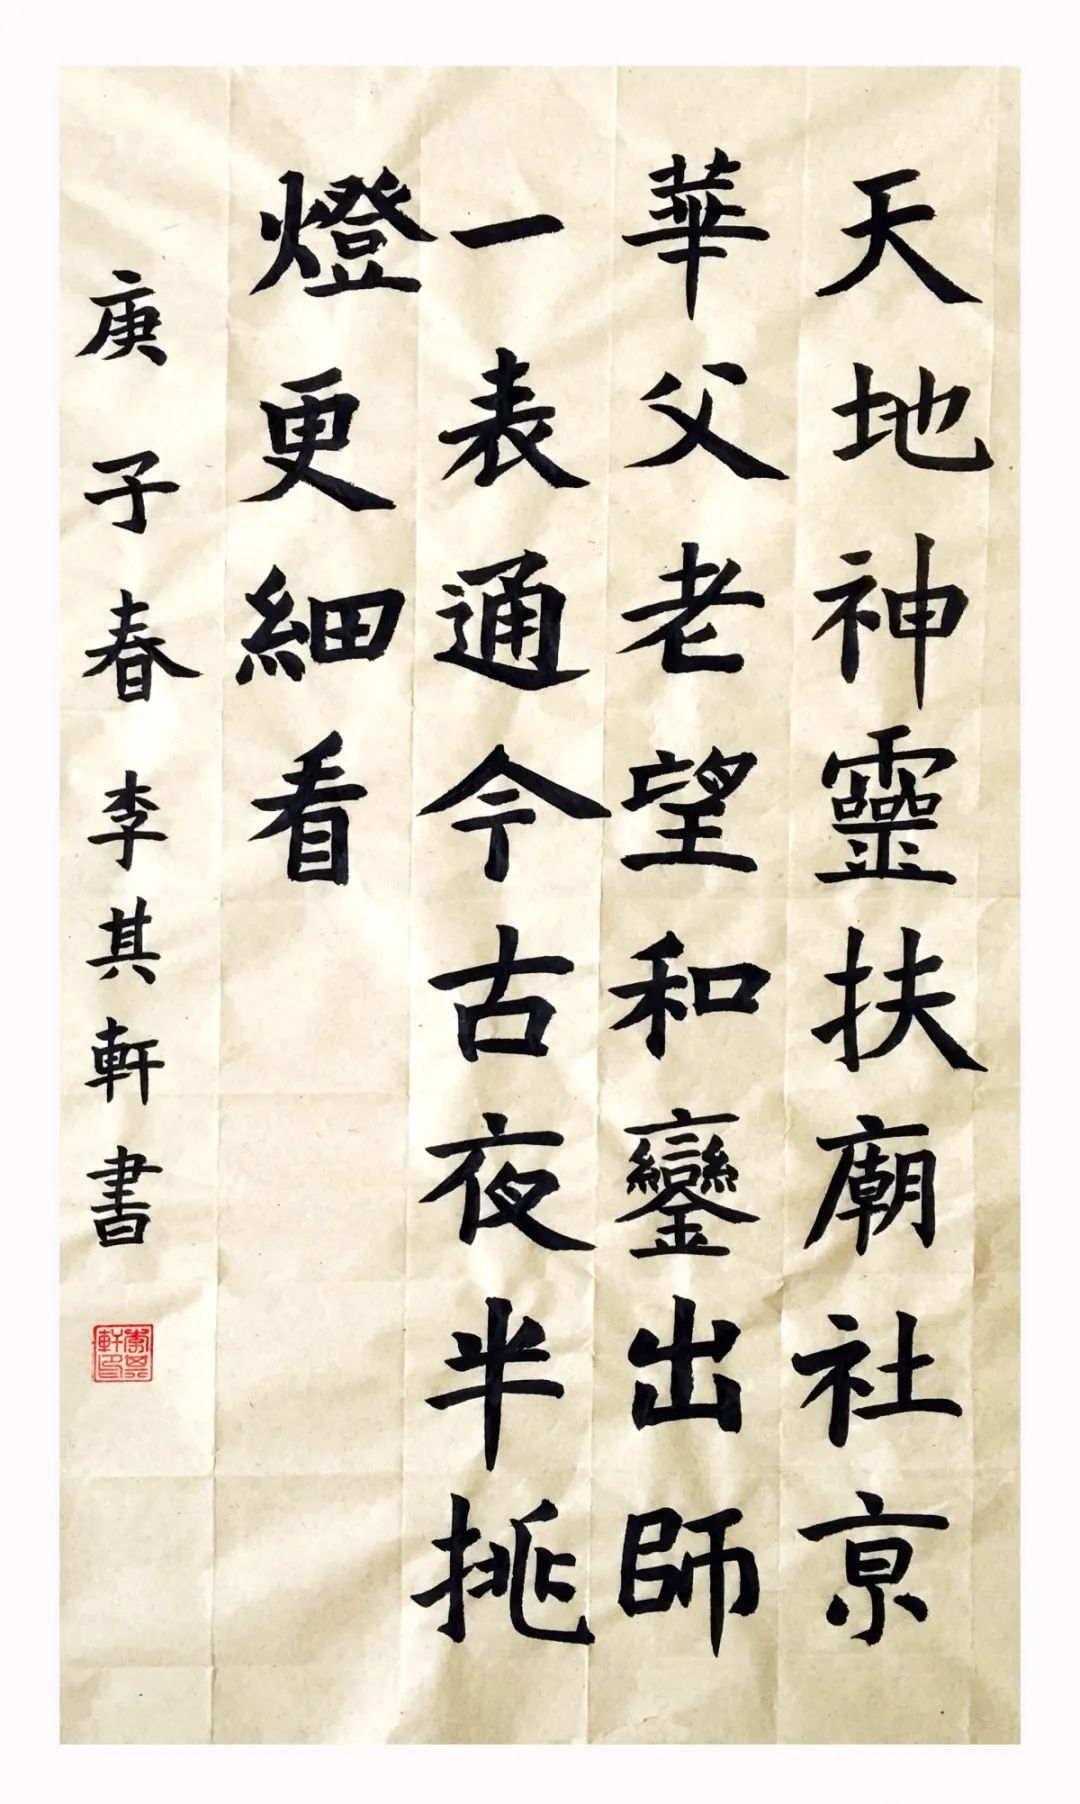 天地神靈扶廟社京
華父老望和鑾出師
一表通今古夜半挑
燈更細看
庚子春李其軒書